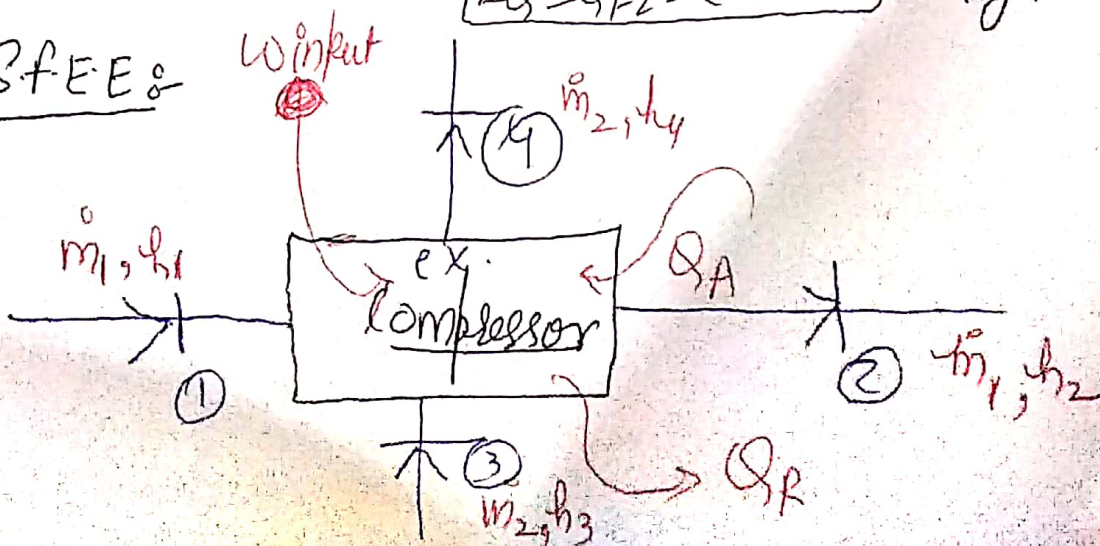 S.f.E.E:-
Winput
ṁ₂, h₄
4
ṁ₁, h₁
ex.
Compressor
Q_A
1
2
ṁ₁, h₂
3
ṁ₂, h₃
Q_R